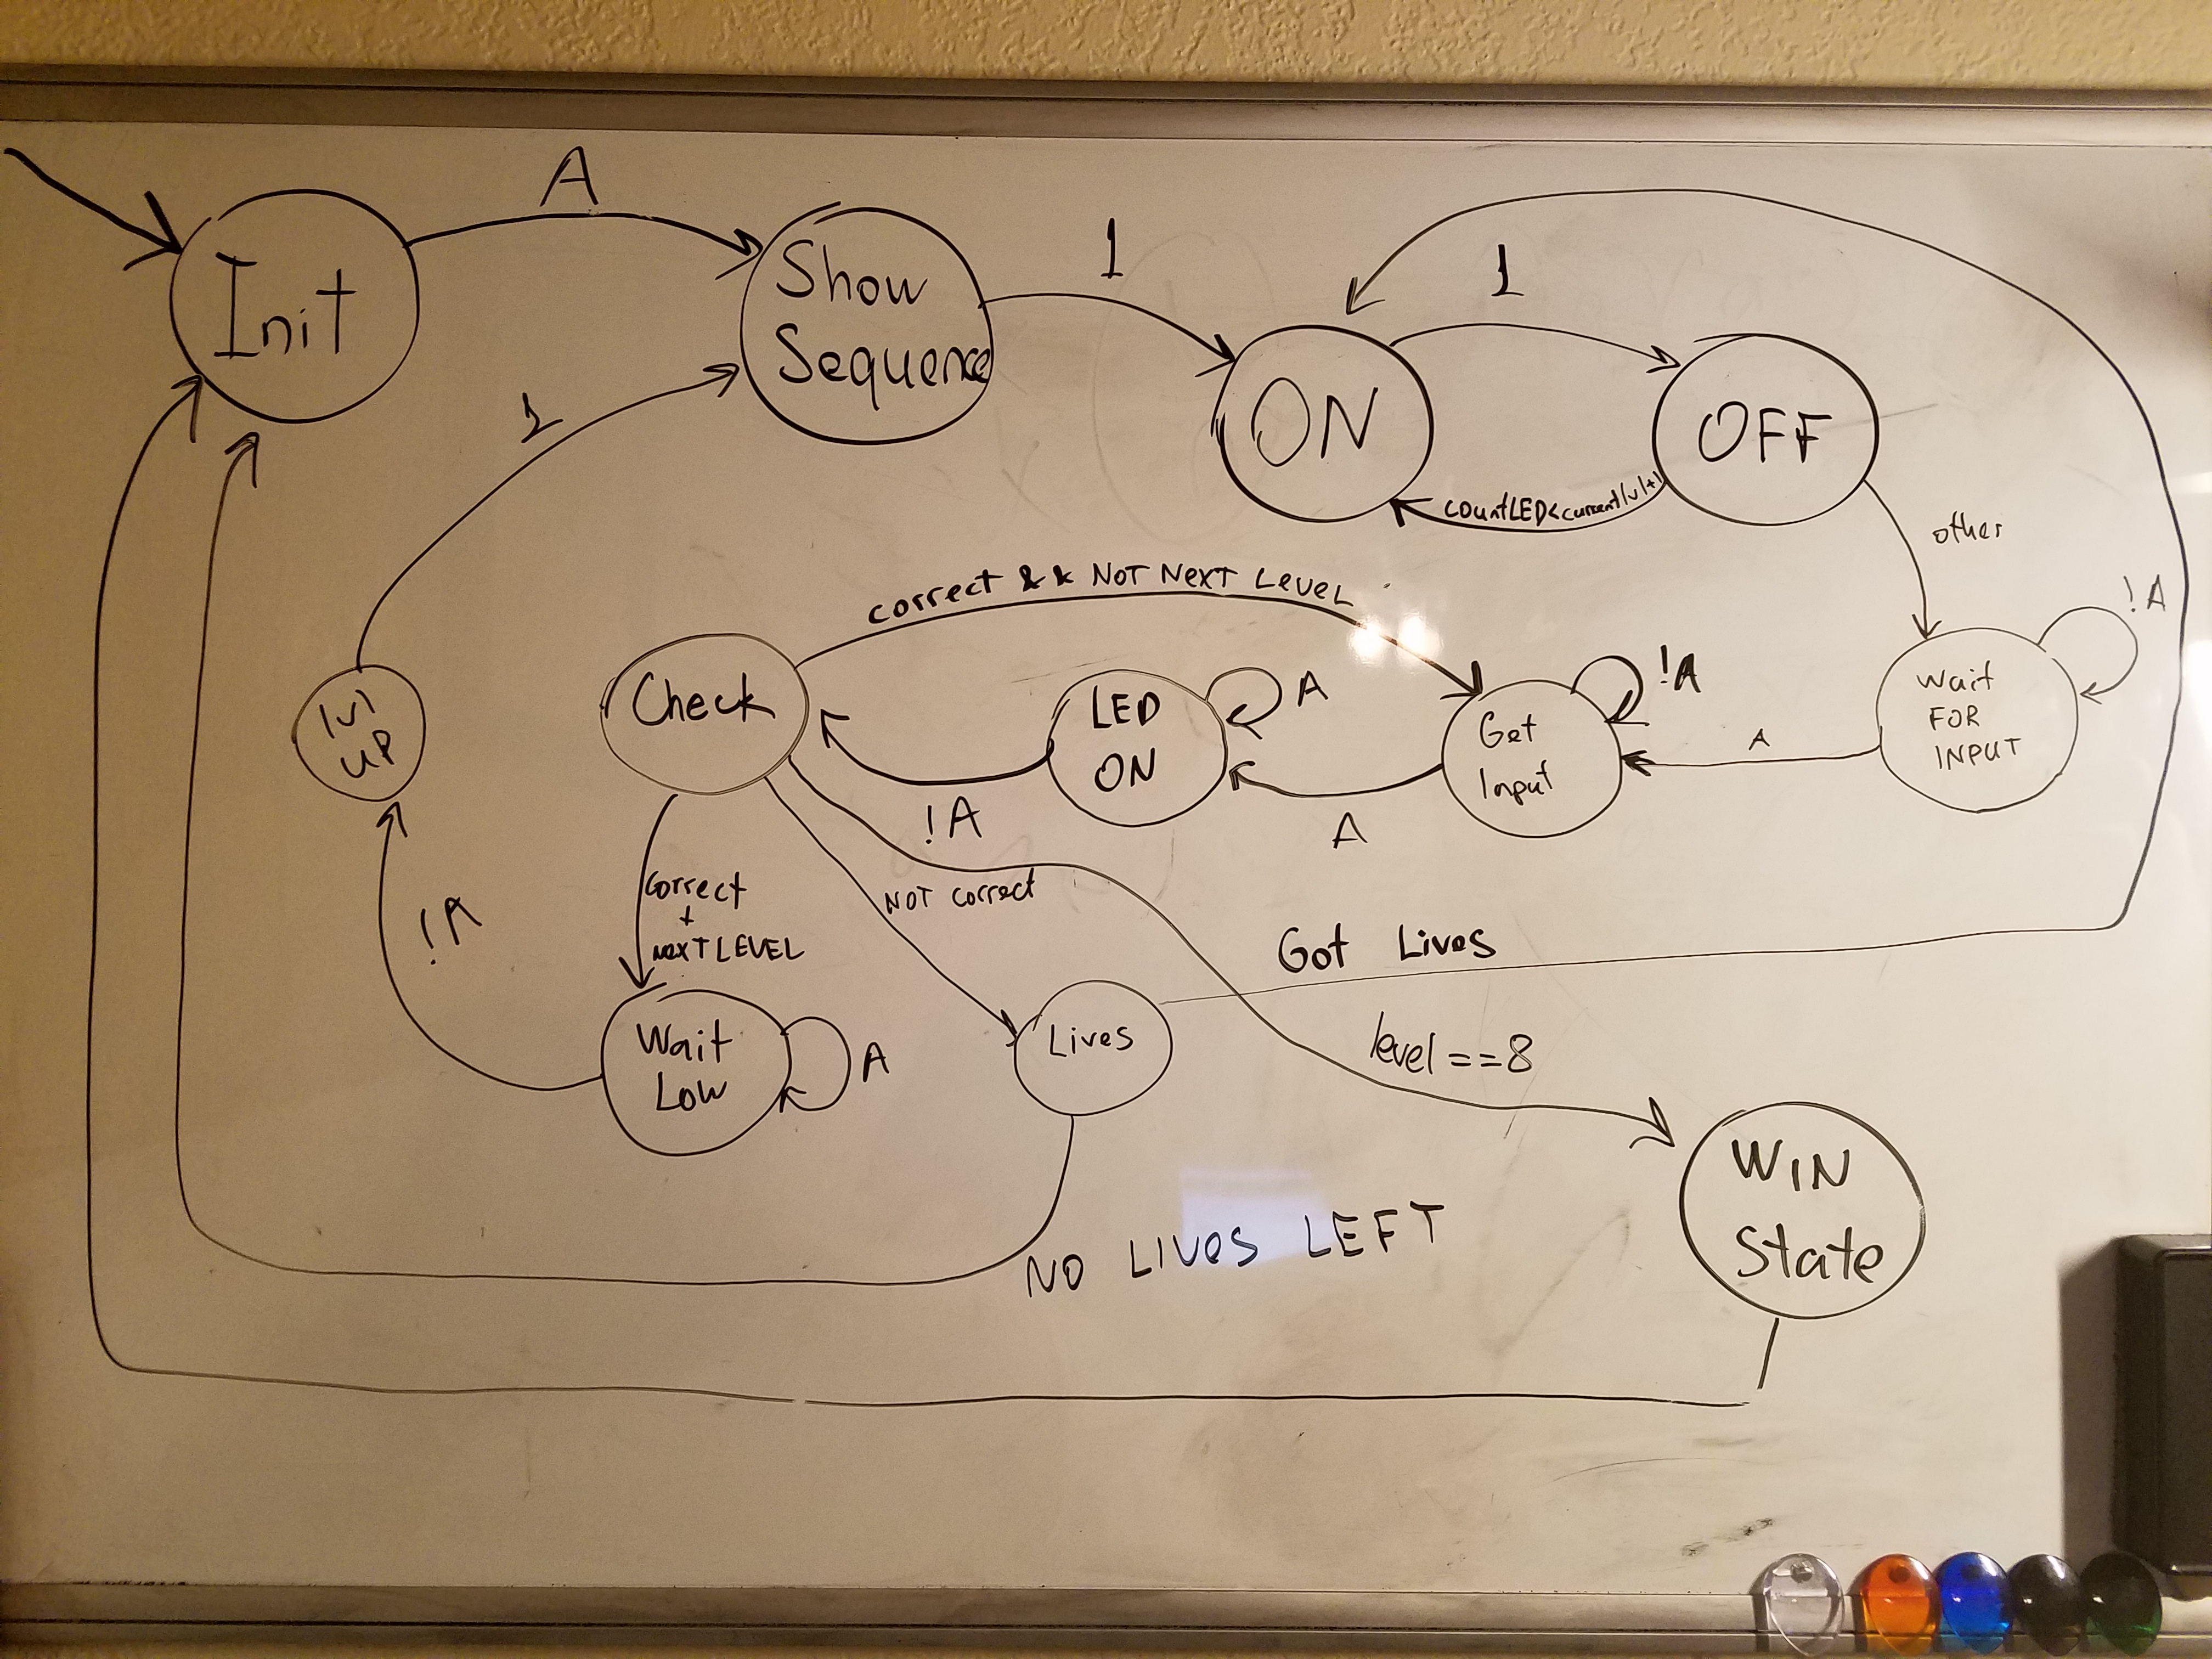 A
Init
Show
Sequence
1
1
ON
1
OFF
countLED<currentlvl+1
other
correct && NOT NEXT LEVEL
!A
lvl
UP
Check
LED
ON
A
Get
Input
!A
A
Wait
FOR
INPUT
!A
A
!A
correct
+
NEXT LEVEL
NOT correct
Got Lives
Wait
Low
A
Lives
level ==8
NO LIVES LEFT
WIN
State